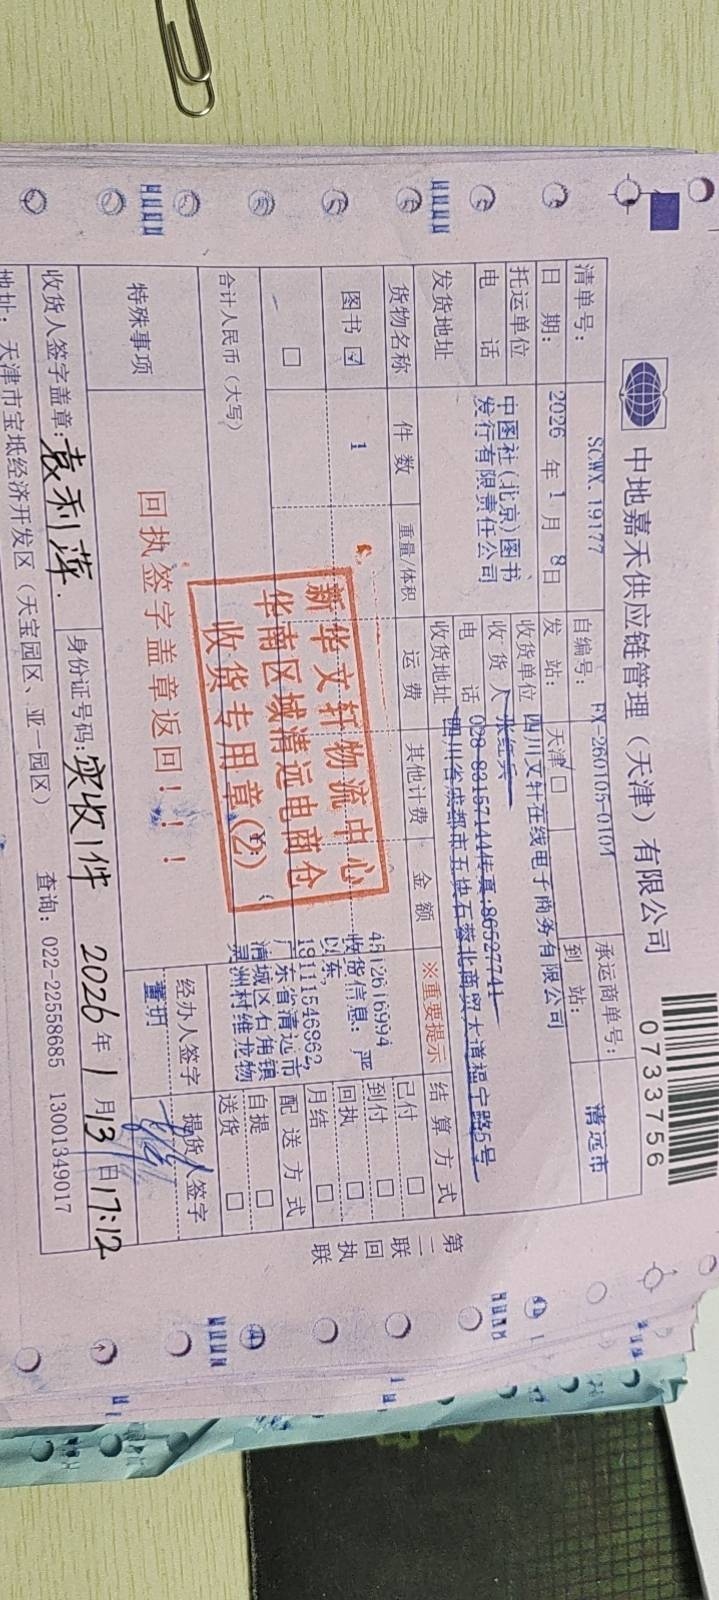 中地嘉禾供应链管理（天津）有限公司
0733756
清单号： SCWX 19177 自编号： FX-260105-0104 承运商单号：
日 期： 2026 年 1 月 8日 发 站： 天津 □ 到 站： 清远市
托运单位 中图社(北京)图书发行有限责任公司 收货单位 四川文轩在线电子商务有限公司
收 货 人
电 话 电 话 028-83157144传真:86527741
发货地址 收货地址 四川省成都市五块石蓉北商贸大道福宁路5号
货物名称 件 数 重量/体积 运 费 其他计费 金 额 ※重要提示 结 算 方 式
图书 ☑ 1
□
4512616994
收货信息：严
以东,
19111546862,
广东省清远市
清城区石角镇
灵洲村维龙物
已付 □
到付 □
回执 □
月结 □
配 送 方 式
自提 □
送货 □
合计人民币（大写）
新华文轩物流中心
华南区域清远电商仓
收货专用章(2)
特殊事项 回执签字盖章返回！！！ 经办人签字 提货人签字
董玥
收货人签字盖章： 袁利萍. 身份证号码： 实收1件 2026 年 1 月 13 日 17:12
地址：天津市宝坻经济开发区（天宝园区、亚一园区） 查询：022-22558685 13001349017
第二联 回执联